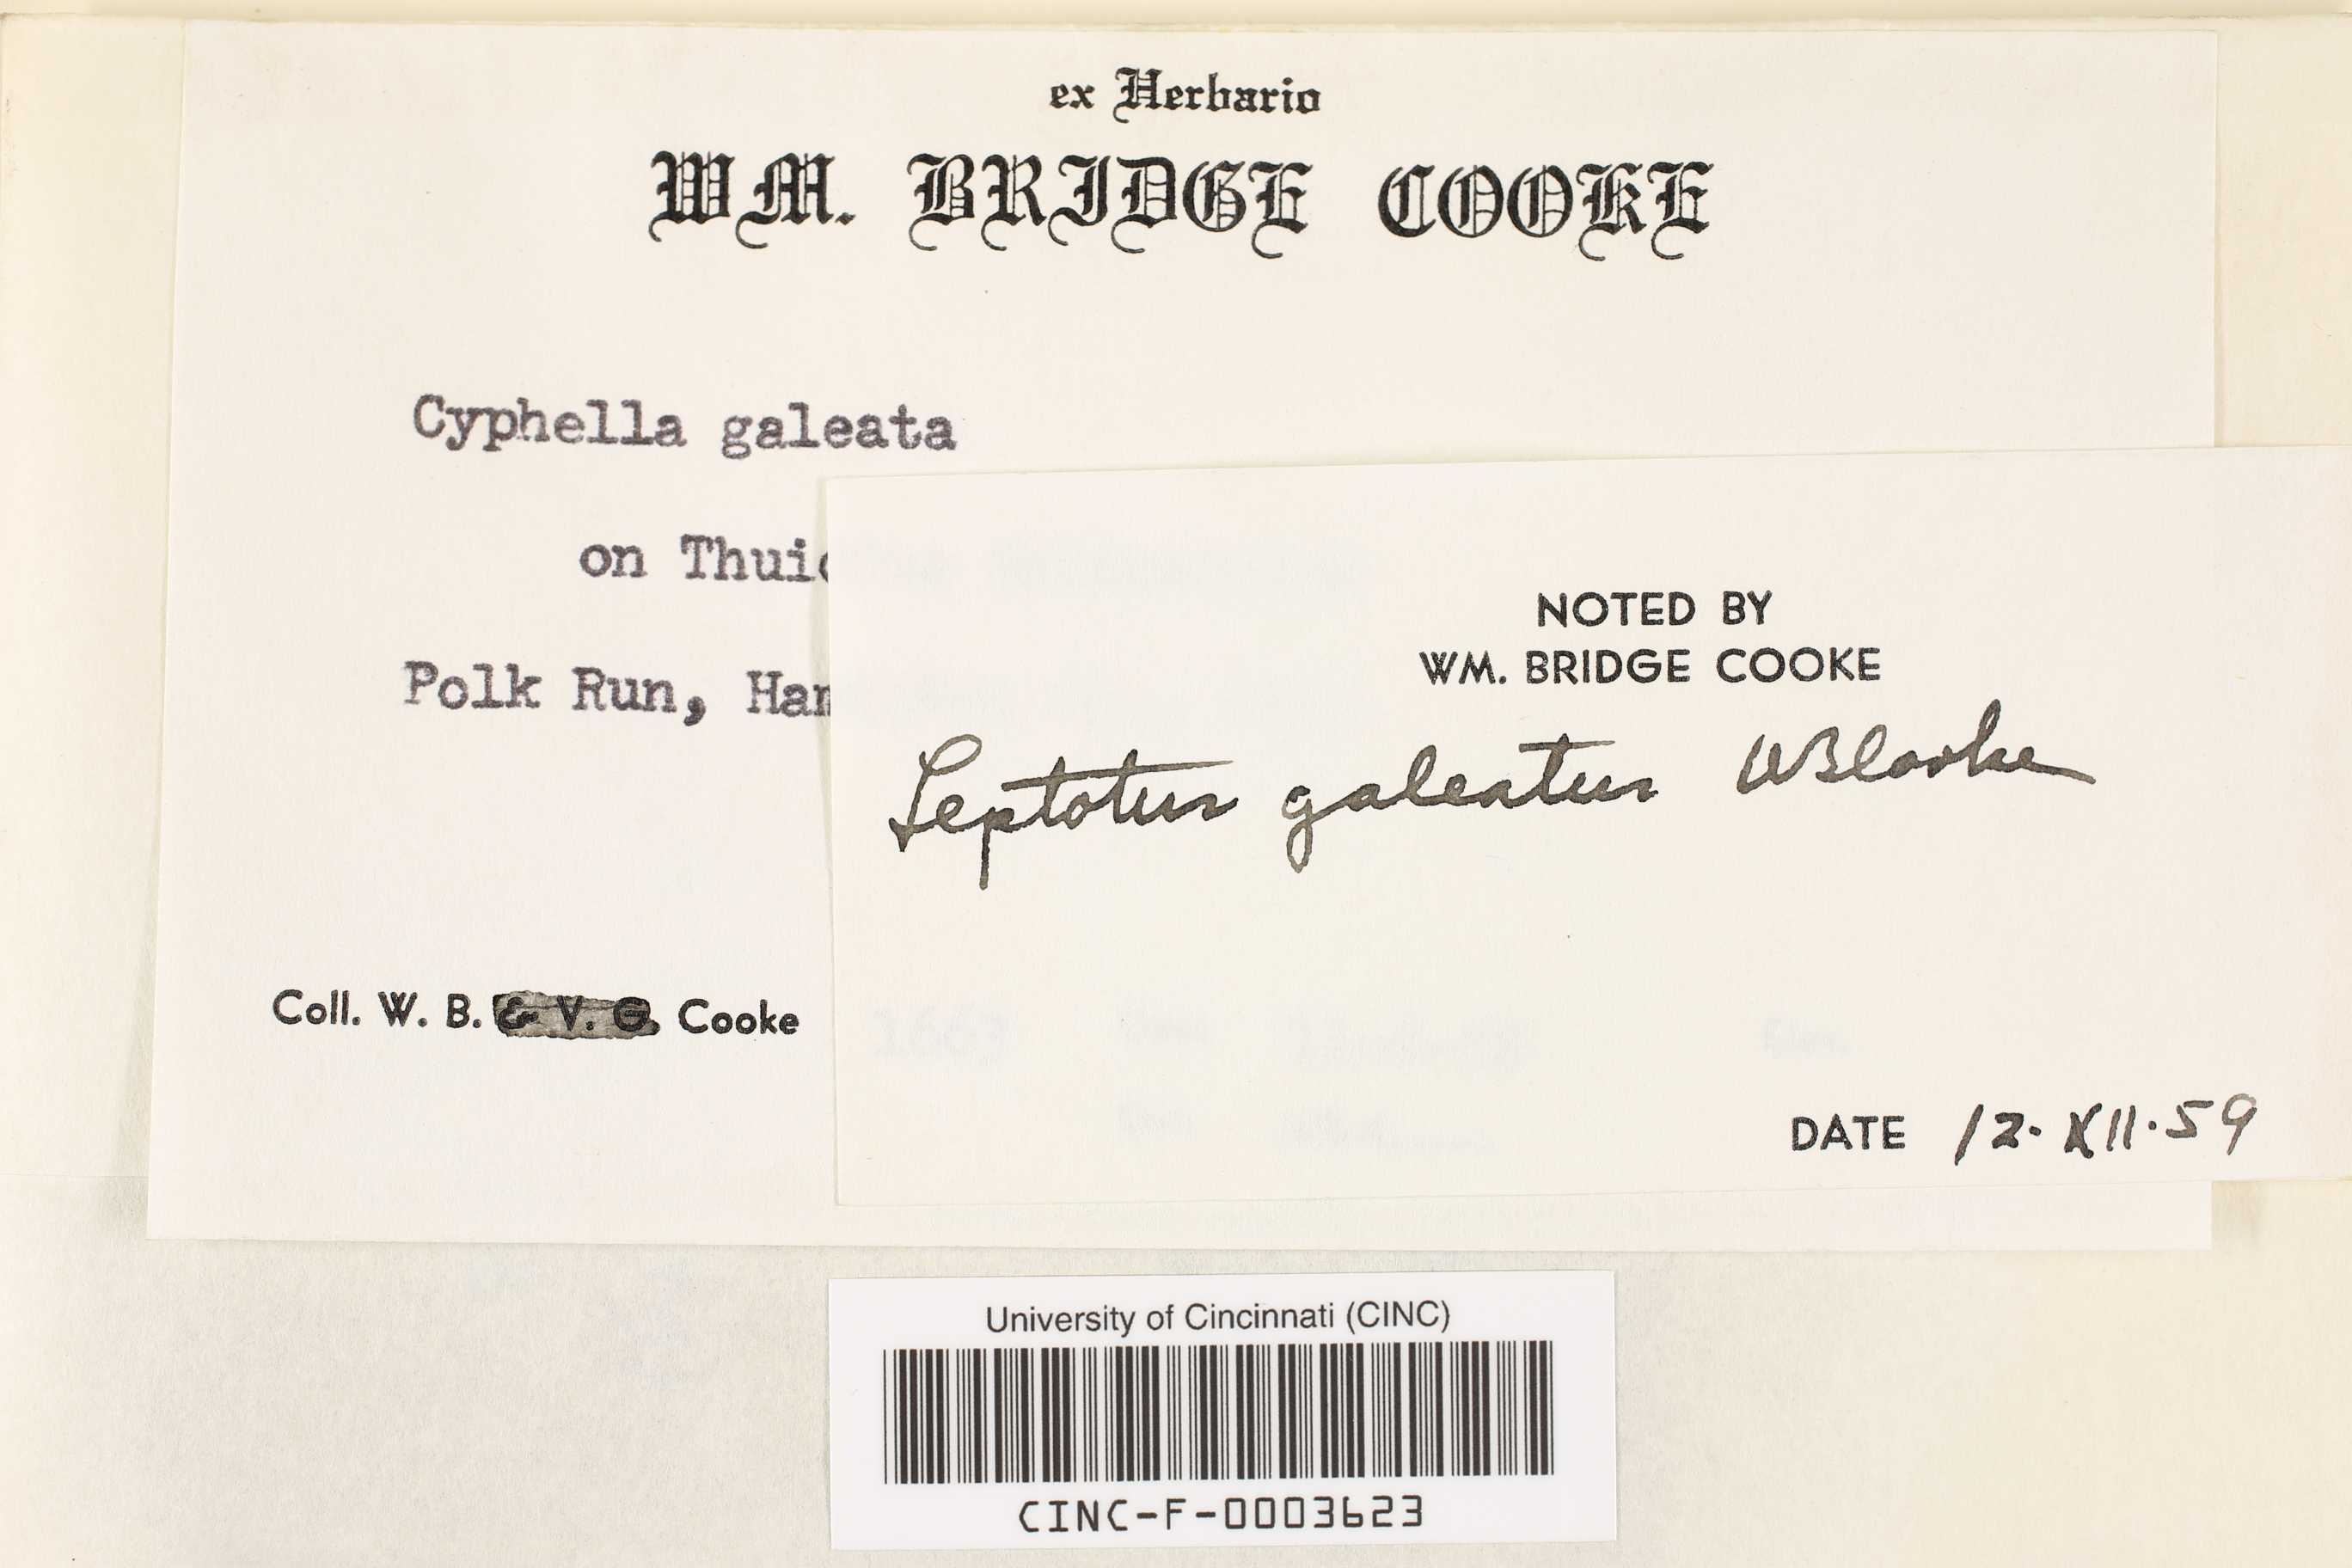 ex Herbario
WM. BRIDGE COOKE
Cyphella galeata
on Thuid
Polk Run, Ham
NOTED BY
WM. BRIDGE COOKE
Leptotus galeatus WBCooke
Coll. W. B. & V. G. Cooke
DATE 12.XII.59
University of Cincinnati (CINC)
CINC-F-0003623